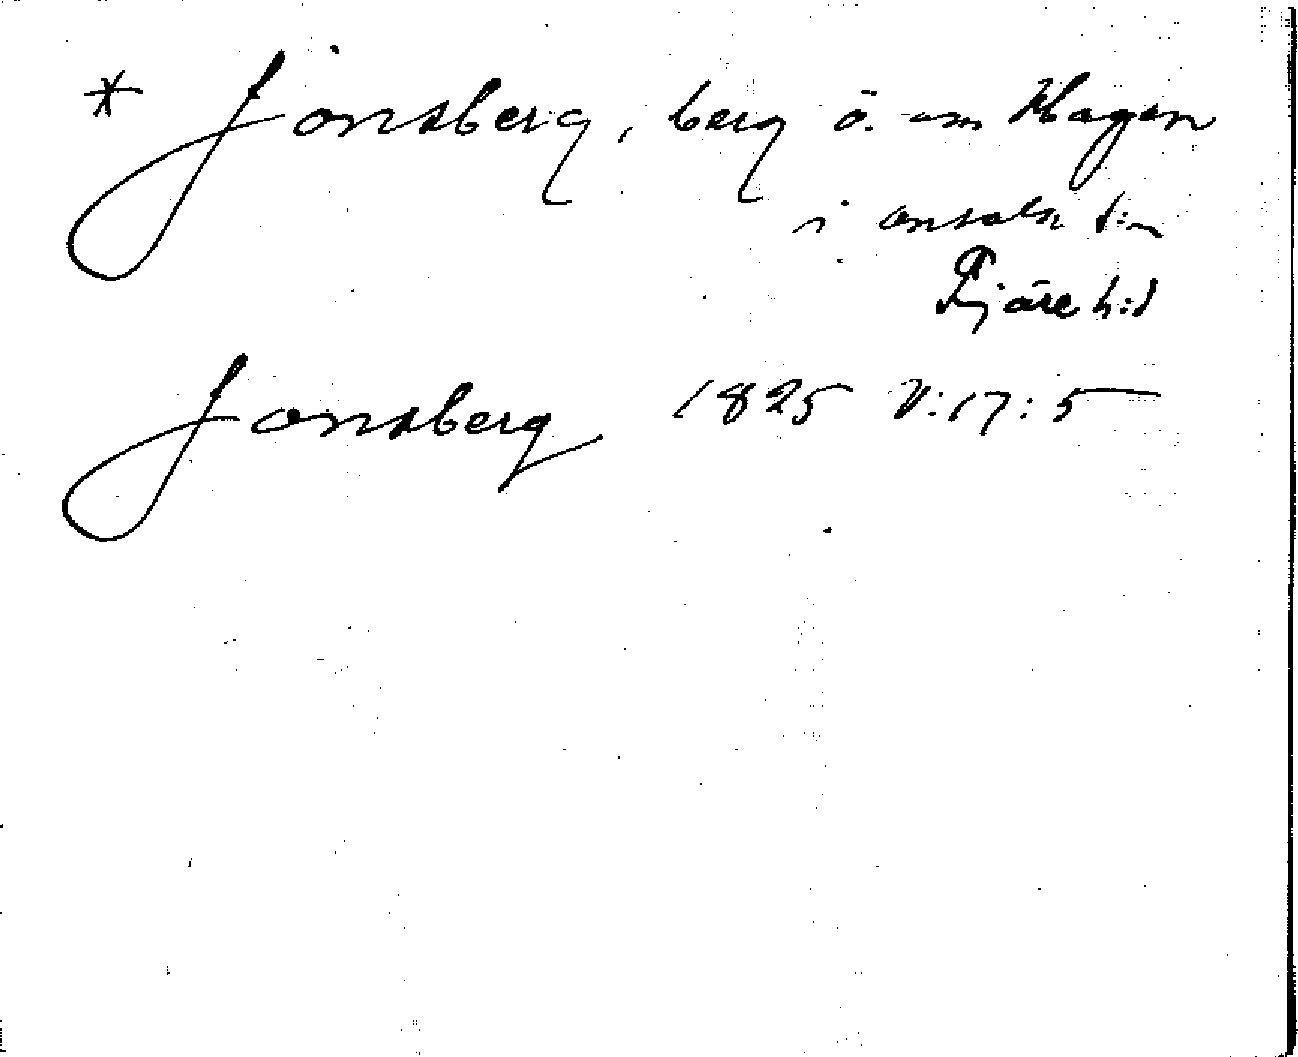 * Jonsberg, berg ö. om Hagen
i Onsala s:n
Fjäre h:d
Jonsberg 1825 V:17:5